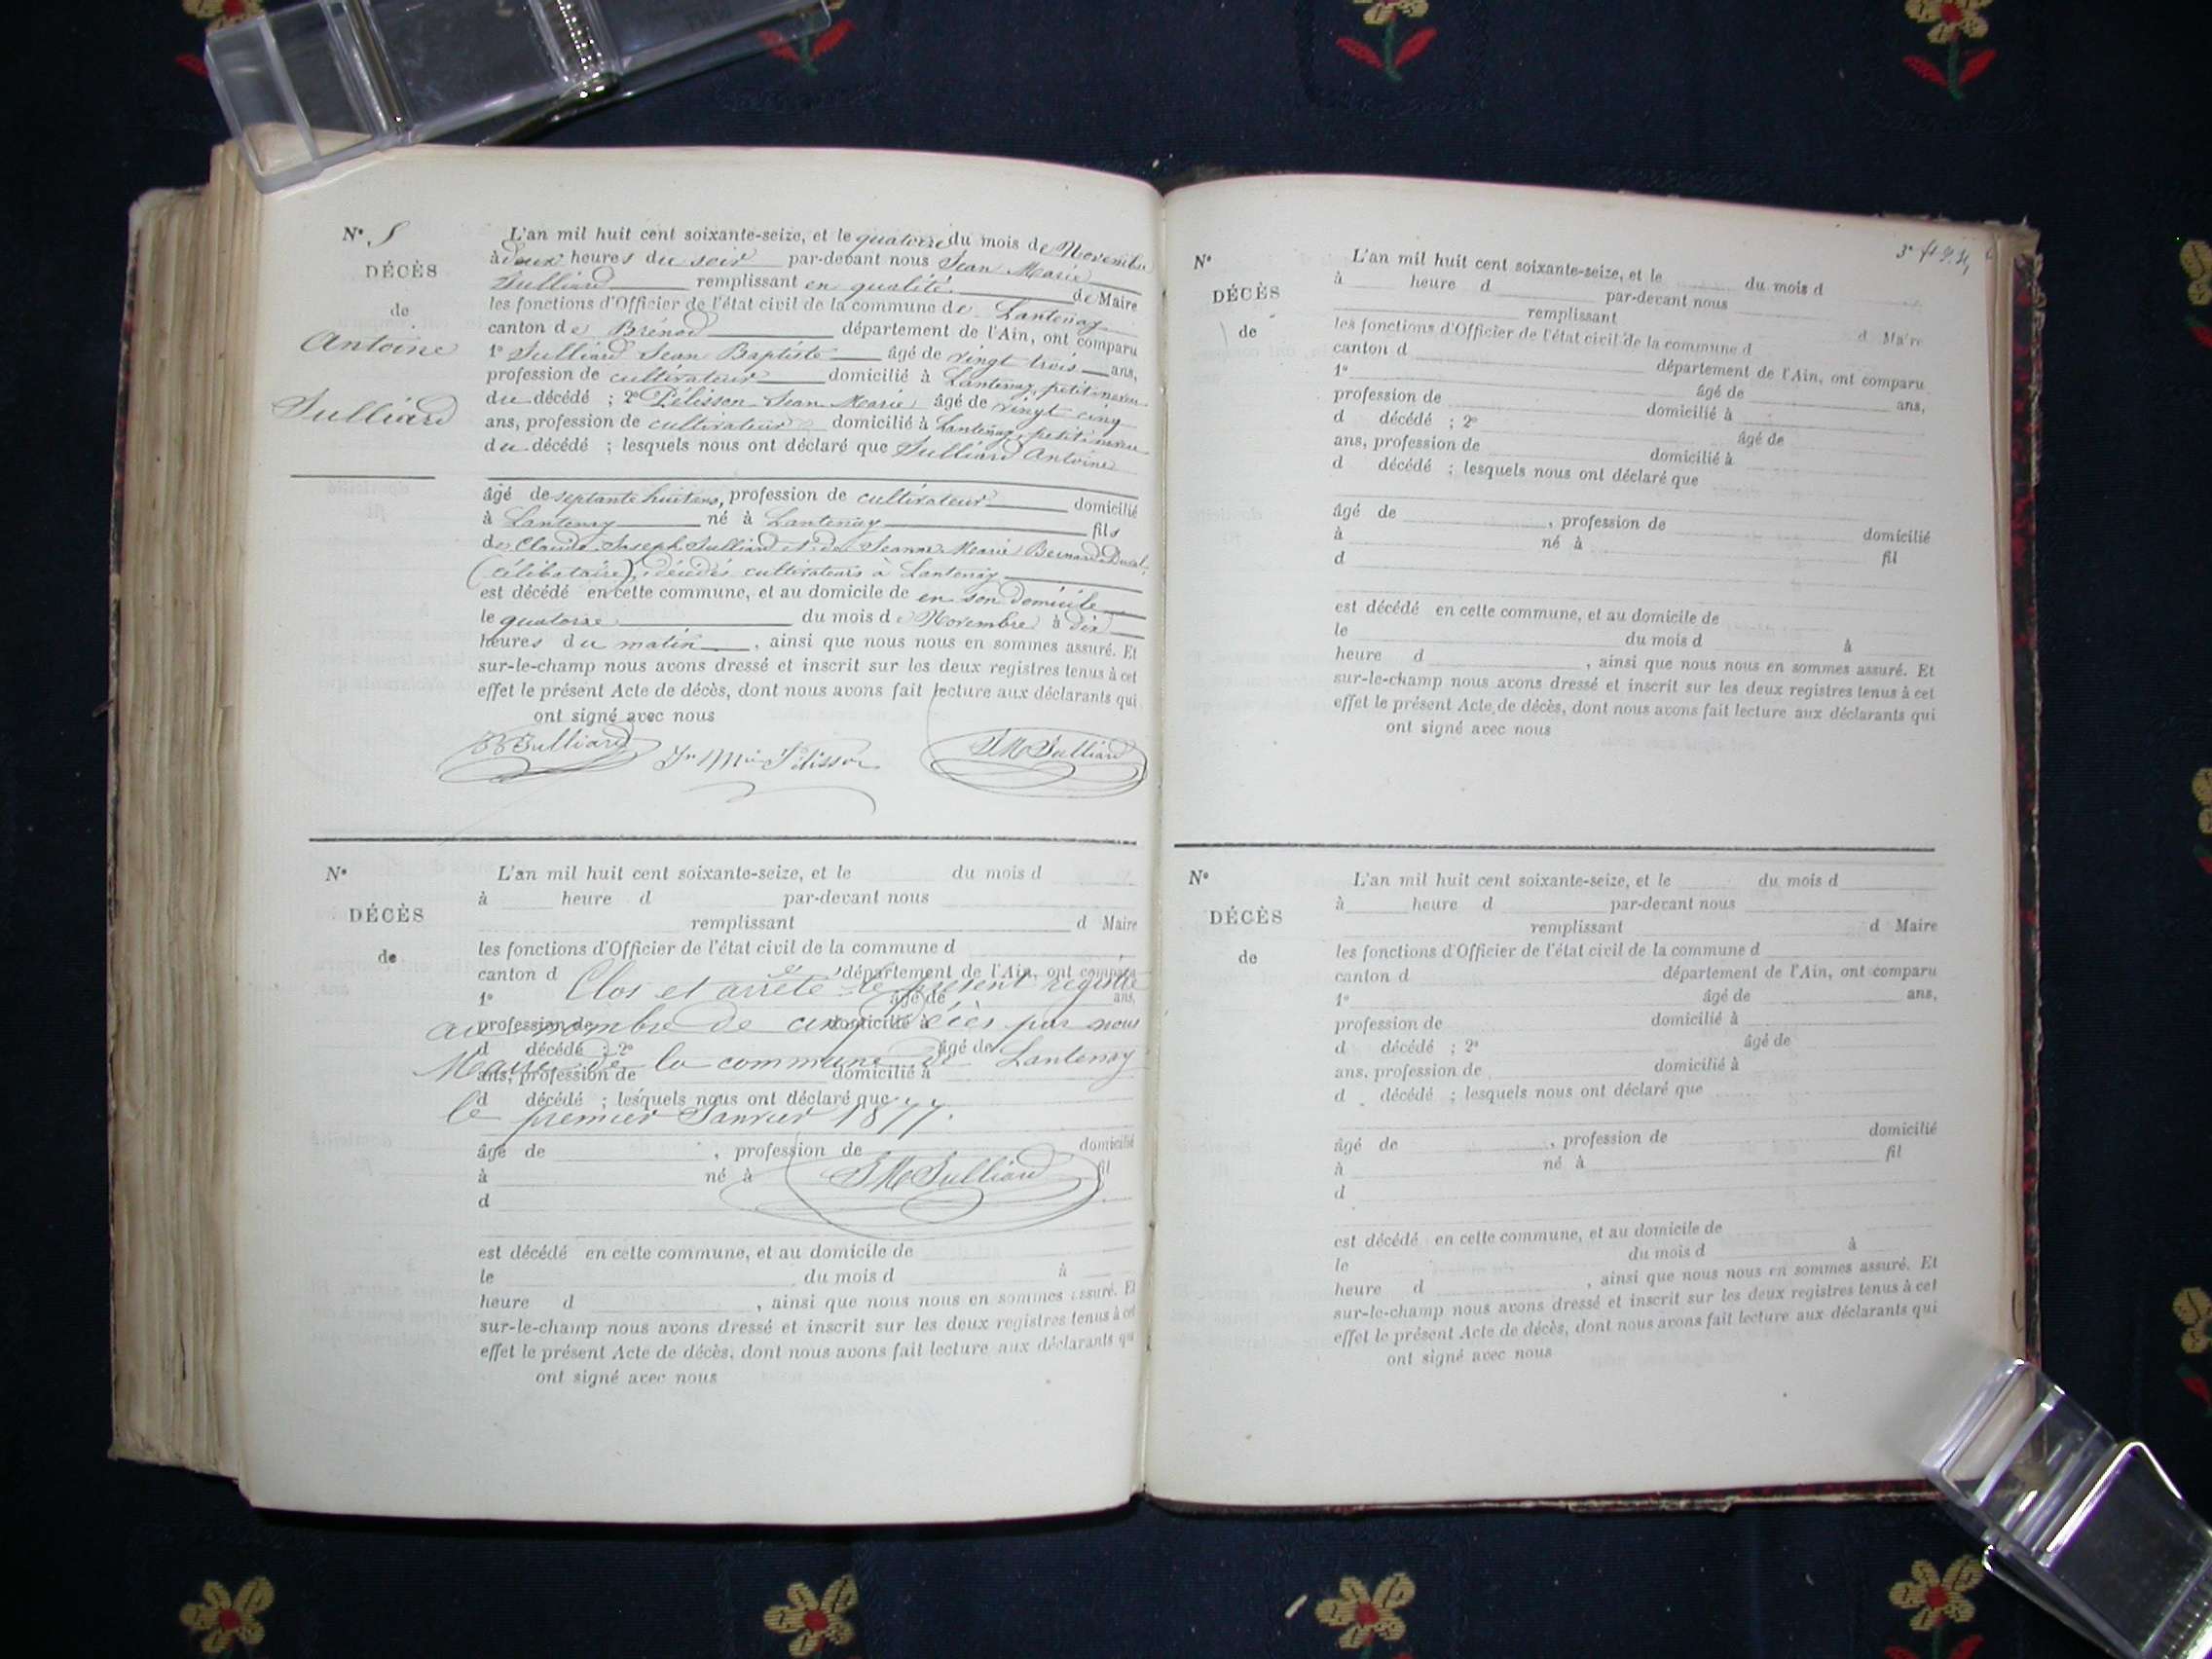 N° 5
DÉCÈS
de
Antoine
Julliard
L'an mil huit cent soixante-seize, et le quatorze du mois de Novembre
à deux heures du soir par-devant nous Jean Marie
Julliard remplissant en qualité de Maire
les fonctions d'Officier de l'état civil de la commune de Lantenay
canton de Brénod département de l'Ain, ont comparu
1° Julliard Jean Baptiste âgé de vingt trois ans,
profession de cultivateur domicilié à Lantenay, petit neveu
du décédé ; 2° Pélisson Jean Marie âgé de vingt cinq
ans, profession de cultivateur domicilié à Lantenay, petit neveu
du décédé ; lesquels nous ont déclaré que Julliard Antoine
âgé de septante huit ans, profession de cultivateur domicilié
à Lantenay né à Lantenay fils
de Claude Joseph Julliard et de Jeanne Marie Bernard
(célibataire), décédés cultivateurs à Lantenay
est décédé en cette commune, et au domicile de en son domicile
le quatorze du mois de Novembre à dix
heures du matin, ainsi que nous nous en sommes assuré. Et
sur-le-champ nous avons dressé et inscrit sur les deux registres tenus à cet
effet le présent Acte de décès, dont nous avons fait lecture aux déclarants qui
ont signé avec nous
JB Julliard Jn Mie Pélisson JM Julliard
N°
DÉCÈS
de
L'an mil huit cent soixante-seize, et le du mois d
à heure d par-devant nous
remplissant d Maire
les fonctions d'Officier de l'état civil de la commune d
canton d département de l'Ain, ont comparu
Clos et arrêté le présent registre
1° âgé de ans,
au nombre de cinq décès par nous
profession de domicilié à
d décédé ; 2° âgé de
Maire de la commune de Lantenay
ans, profession de domicilié à
d décédé ; lesquels nous ont déclaré que
le premier Janvier 1877.
âgé de , profession de domicilié
à né à fil
JM Julliard
d
est décédé en cette commune, et au domicile de
le du mois d à
heure d , ainsi que nous nous en sommes assuré. Et
sur-le-champ nous avons dressé et inscrit sur les deux registres tenus à cet
effet le présent Acte de décès, dont nous avons fait lecture aux déclarants qui
ont signé avec nous
N°
DÉCÈS
de
L'an mil huit cent soixante-seize, et le du mois d
à heure d par-devant nous
remplissant d Maire
les fonctions d'Officier de l'état civil de la commune d
canton d département de l'Ain, ont comparu
1° âgé de ans,
profession de domicilié à
d décédé ; 2° âgé de
ans, profession de domicilié à
d décédé ; lesquels nous ont déclaré que
âgé de , profession de domicilié
à né à fil
d
est décédé en cette commune, et au domicile de
le du mois d à
heure d , ainsi que nous nous en sommes assuré. Et
sur-le-champ nous avons dressé et inscrit sur les deux registres tenus à cet
effet le présent Acte de décès, dont nous avons fait lecture aux déclarants qui
ont signé avec nous
N°
DÉCÈS
de
L'an mil huit cent soixante-seize, et le du mois d
à heure d par-devant nous
remplissant d Maire
les fonctions d'Officier de l'état civil de la commune d
canton d département de l'Ain, ont comparu
1° âgé de ans,
profession de domicilié à
d décédé ; 2° âgé de
ans, profession de domicilié à
d décédé ; lesquels nous ont déclaré que
âgé de , profession de domicilié
à né à fil
d
est décédé en cette commune, et au domicile de
le du mois d à
heure d , ainsi que nous nous en sommes assuré. Et
sur-le-champ nous avons dressé et inscrit sur les deux registres tenus à cet
effet le présent Acte de décès, dont nous avons fait lecture aux déclarants qui
ont signé avec nous